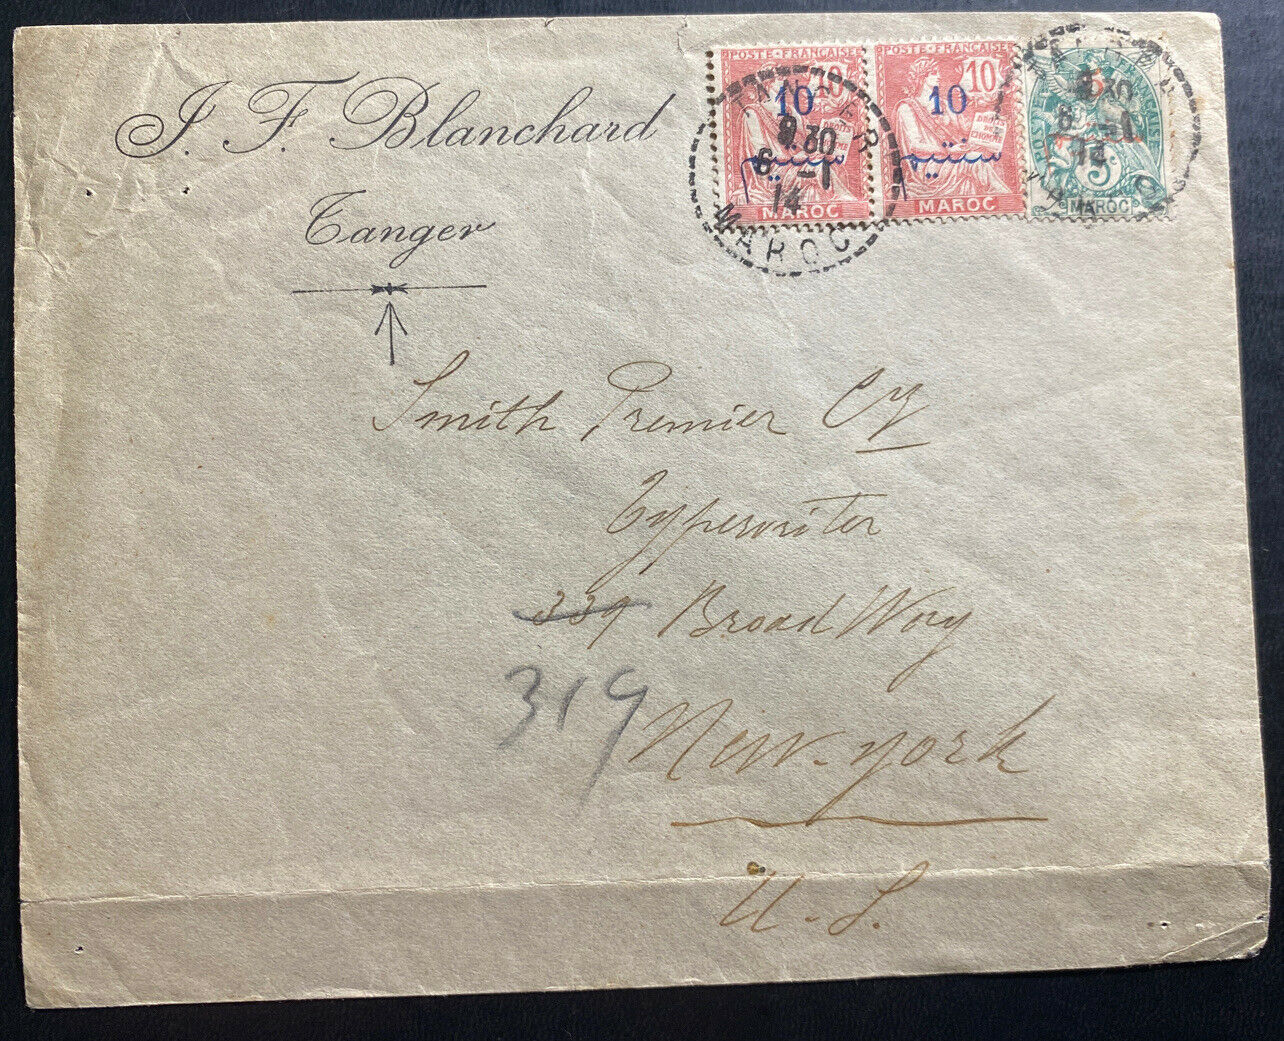 J. F. Blanchard
Tanger
POSTE FRANÇAISE POSTE FRANÇAISE
10 10 5
10 10
سنتيم سنتيم
DROITS DE L'HOMME
MAROC MAROC 5 MAROC
TANGER
9 30
6 -1
14
MAROC
30
8 -1
14
Smith Premier Cy
Typewriter
339 Broad Way
319
New-york
U.S.